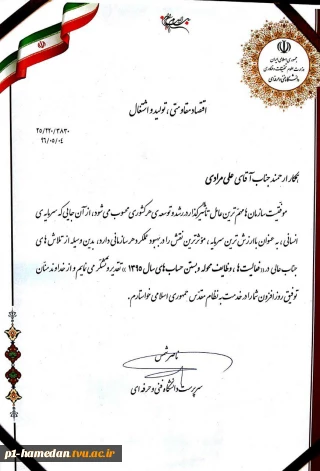 جمهوری اسلامی ایران
وزارت علوم، تحقیقات و فناوری
دانشگاه فنی و حرفه‌ای
اقتصاد مقاومتی ، تولید و اشتغال
۲۵/۲۲۰/۳۸۳۰
۹۶/۰۵/۰۴
همکار ارجمند جناب آقای علی مرادی
موفقیت سازمان ها مهم ترین عامل تأثیرگذار در رشد و توسعه ی هر کشوری محسوب می شود، از آن جایی که سرمایه ی
انسانی ، به عنوان با ارزش ترین سرمایه ، مؤثرترین نقش را در بهبود عملکرد هر سازمانی دارد، بدین وسیله از تلاش های
جناب عالی در « فعالیت ها ، وظایف محوله و بستن حساب های سال ۱۳۹۵ » تقدیر و تشکر می نمایم و از خداوند منّان
توفیق روزافزون شما را در خدمت به نظام مقدّس جمهوری اسلامی خواستارم.
ناصر شمس
سرپرست دانشگاه فنی و حرفه ای
p1-hamedan.tvu.ac.ir